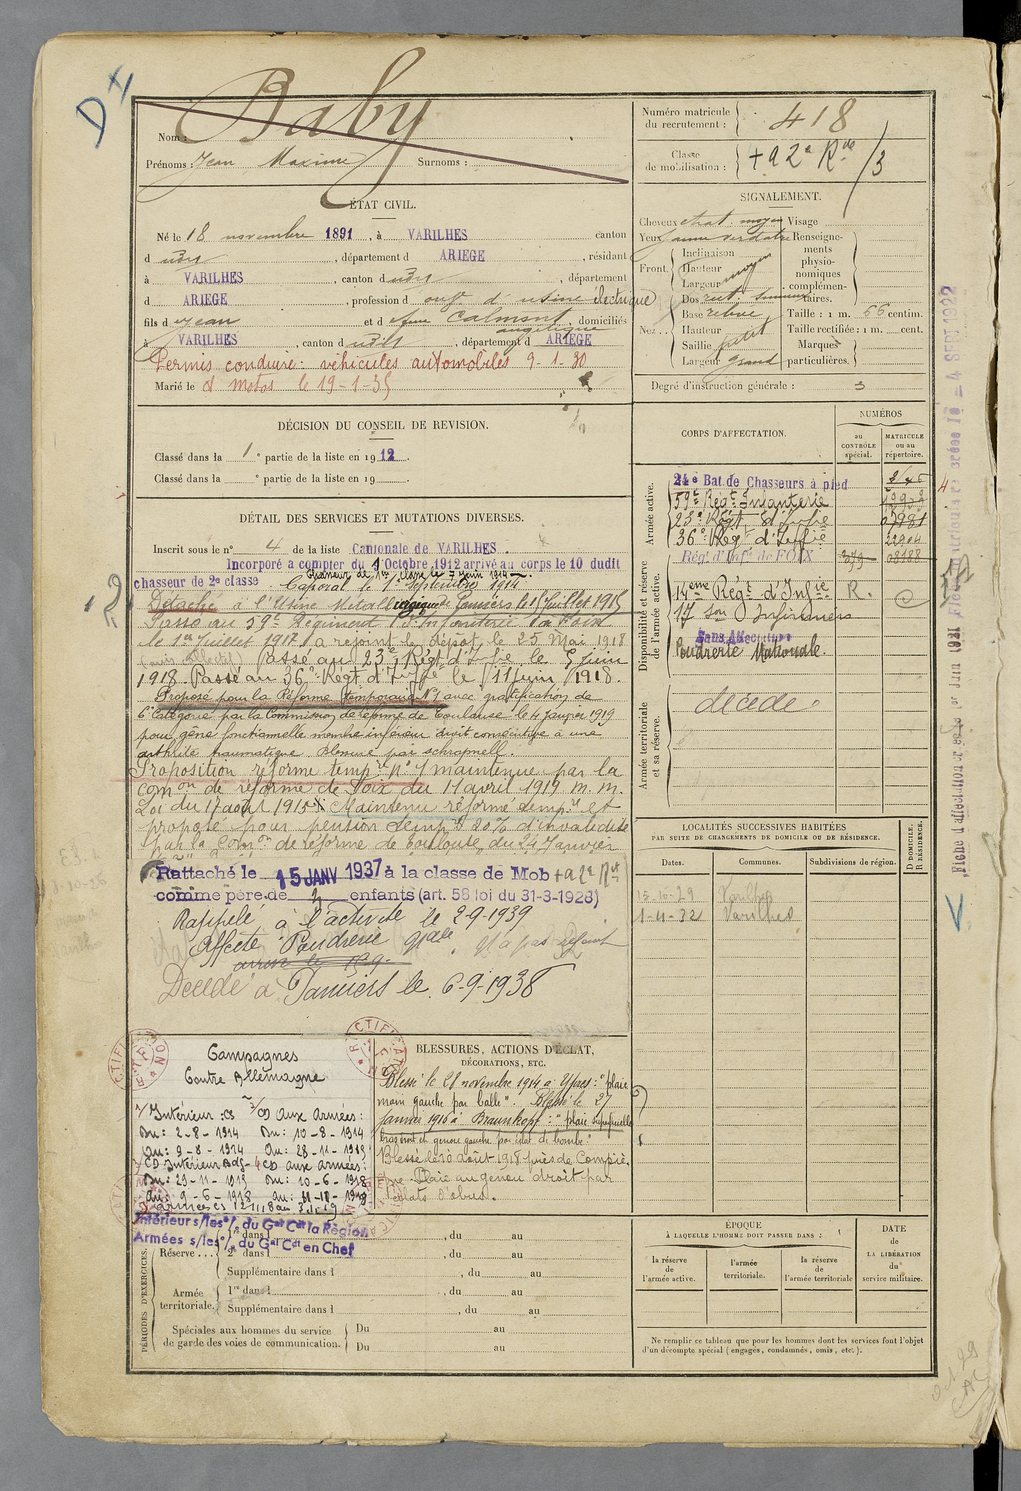 D
Nom : Baby
Prénoms : Jean Maxime Surnoms :
Numéro matricule du recrutement : 418
Classe de mobilisation :
/3
ÉTAT CIVIL.
Né le 18 novembre 1891, à VARILHES canton
d udit, département d ARIEGE, résidant
à VARILHES, canton d udit, département
d ARIEGE, profession d ouvr d'usine électrique
fils d e Jean et d e feue Calmont angélique domiciliés
à VARILHES, canton d udit, département d ARIEGE
Permis conduire : véhicules automobiles 9-1-30
Marié le & motos le 19-1-35
SIGNALEMENT.
Cheveux chat. moyen Visage
Yeux jaune verdâtre Renseignements physionomiques complémentaires.
Front. Inclinaison
Hauteur moyen
Largeur
Nez. Dos rect. sinueux
Base relevé Taille : 1 m. 66 centim.
Hauteur petit Taille rectifiée : 1 m. cent.
Saillie Marques
Largeur grand particulières.
Degré d'instruction générale : 3
DÉCISION DU CONSEIL DE REVISION.
Classé dans la 1e partie de la liste en 1912.
Classé dans la e partie de la liste en 19
DÉTAIL DES SERVICES ET MUTATIONS DIVERSES.
Inscrit sous le n° 4 de la liste Cantonale de VARILHES.
Incorporé à compter du 1 Octobre 1912 arrivé au corps le 10 dudit
chasseur de 2e classe Chasseur de 1re classe le 7 juin 1914
Caporal le 1 septembre 1914
Détaché à l'Usine Métallurgique de Pamiers le 15 Juillet 1915
Passé au 59e Régiment d'Infanterie à Foix
le 1er Juillet 1917. a rejoint le dépôt, le 25 Mai 1918
Passé au 23e Régt d'Ifie le 5 juin
1918. Passé au 36e Regt d'Iffie le 11 juin 1918.
Proposé pour la Réforme temporaire N°1 avec gratification de
6e Catégorie par la Commission de réforme de Toulouse le 4 Janvier 1919
pour gêne fonctionnelle membre inférieur droit consécutive à une
arthrite traumatique. Blessure par schrapnell.
Proposition réforme tempre n° 1 maintenue par la
comon de réforme de Foix du 11 avril 1919 m. m.
Loi du 17 août 1915. Maintenu réformé tempre et
proposé pour pension tempre 20% d'invalidité
par la Comon de réforme de Toulouse du 24 Janvier
Rattaché le 15 JANV 1937 à la classe de Mob
comme père de enfants (art. 58 loi du 31-3-1928)
Rappelé à l'activité le 2-9-1939
Affecté Poudrerie
Décédé à Pamiers le 6-9-1938
CORPS D'AFFECTATION.
NUMÉROS
au CONTRÔLE spécial.
MATRICULE ou au répertoire.
Armée active.
24e Bat. de Chasseurs à pied
59e Regt Infanterie
23e Régt d'Infie
36e Regt d'Iffie 22904
Régt d'Infie de FOIX 379 08188
Disponibilité et réserve de l'armée active.
14eme Régt d'Infie R.
17 Son Infirmiers
Sans Affectation
Poudrerie Nationale.
Armée territoriale et sa réserve.
décédé
LOCALITÉS SUCCESSIVES HABITÉES
PAR SUITE DE CHANGEMENTS DE DOMICILE OU DE RÉSIDENCE.
Dates. Communes. Subdivisions de région. D DOMICILE. R RÉSIDENCE.
15-10-29
1-11-32 Varilhes
Campagnes
Contre Allemagne
1/ Intérieur : CS 2/ CD Aux Armées :
Du : 2-8-1914 Du : 10-8-1914
Au : 9-8-1914 Au : 28-11-1915
3/ CD Intérieur 4/ CD aux armées :
Du : 29-11-1915 Du : 10-6-1918
Au : 9-6-1918
Intérieur s/les o/. du Gal Cdt la Région
Armées s/les o/. du Gal Cdt en Chef
BLESSURES, ACTIONS D'ÉCLAT,
DÉCORATIONS, ETC.
Blessé le 28 novembre 1914 à Ypres : "plaie
main gauche par balle". Blessé le 27
janvier 1915 à Braunkopf : "plaie superficielle
bras droit et genou gauche par éclat de bombe"
Blessé le 20 août 1918 près de Compiè
gne Plaie au genou droit par
éclats d'obus.
PÉRIODES D'EXERCICES.
Réserve 1re dans l , du au
2e dans l , du au
Supplémentaire dans l , du au
Armée territoriale. 1re dans l , du au
Supplémentaire dans l , du au
Spéciales aux hommes du service de garde des voies de communication. Du au
Du au
ÉPOQUE
À LAQUELLE L'HOMME DOIT PASSER DANS :
la réserve de l'armée active.
l'armée territoriale.
la réserve de l'armée territoriale
DATE DE LA LIBÉRATION du service militaire.
Ne remplir ce tableau que pour les hommes dont les services font l'objet
d'un décompte spécial (engagés, condamnés, omis, etc.).